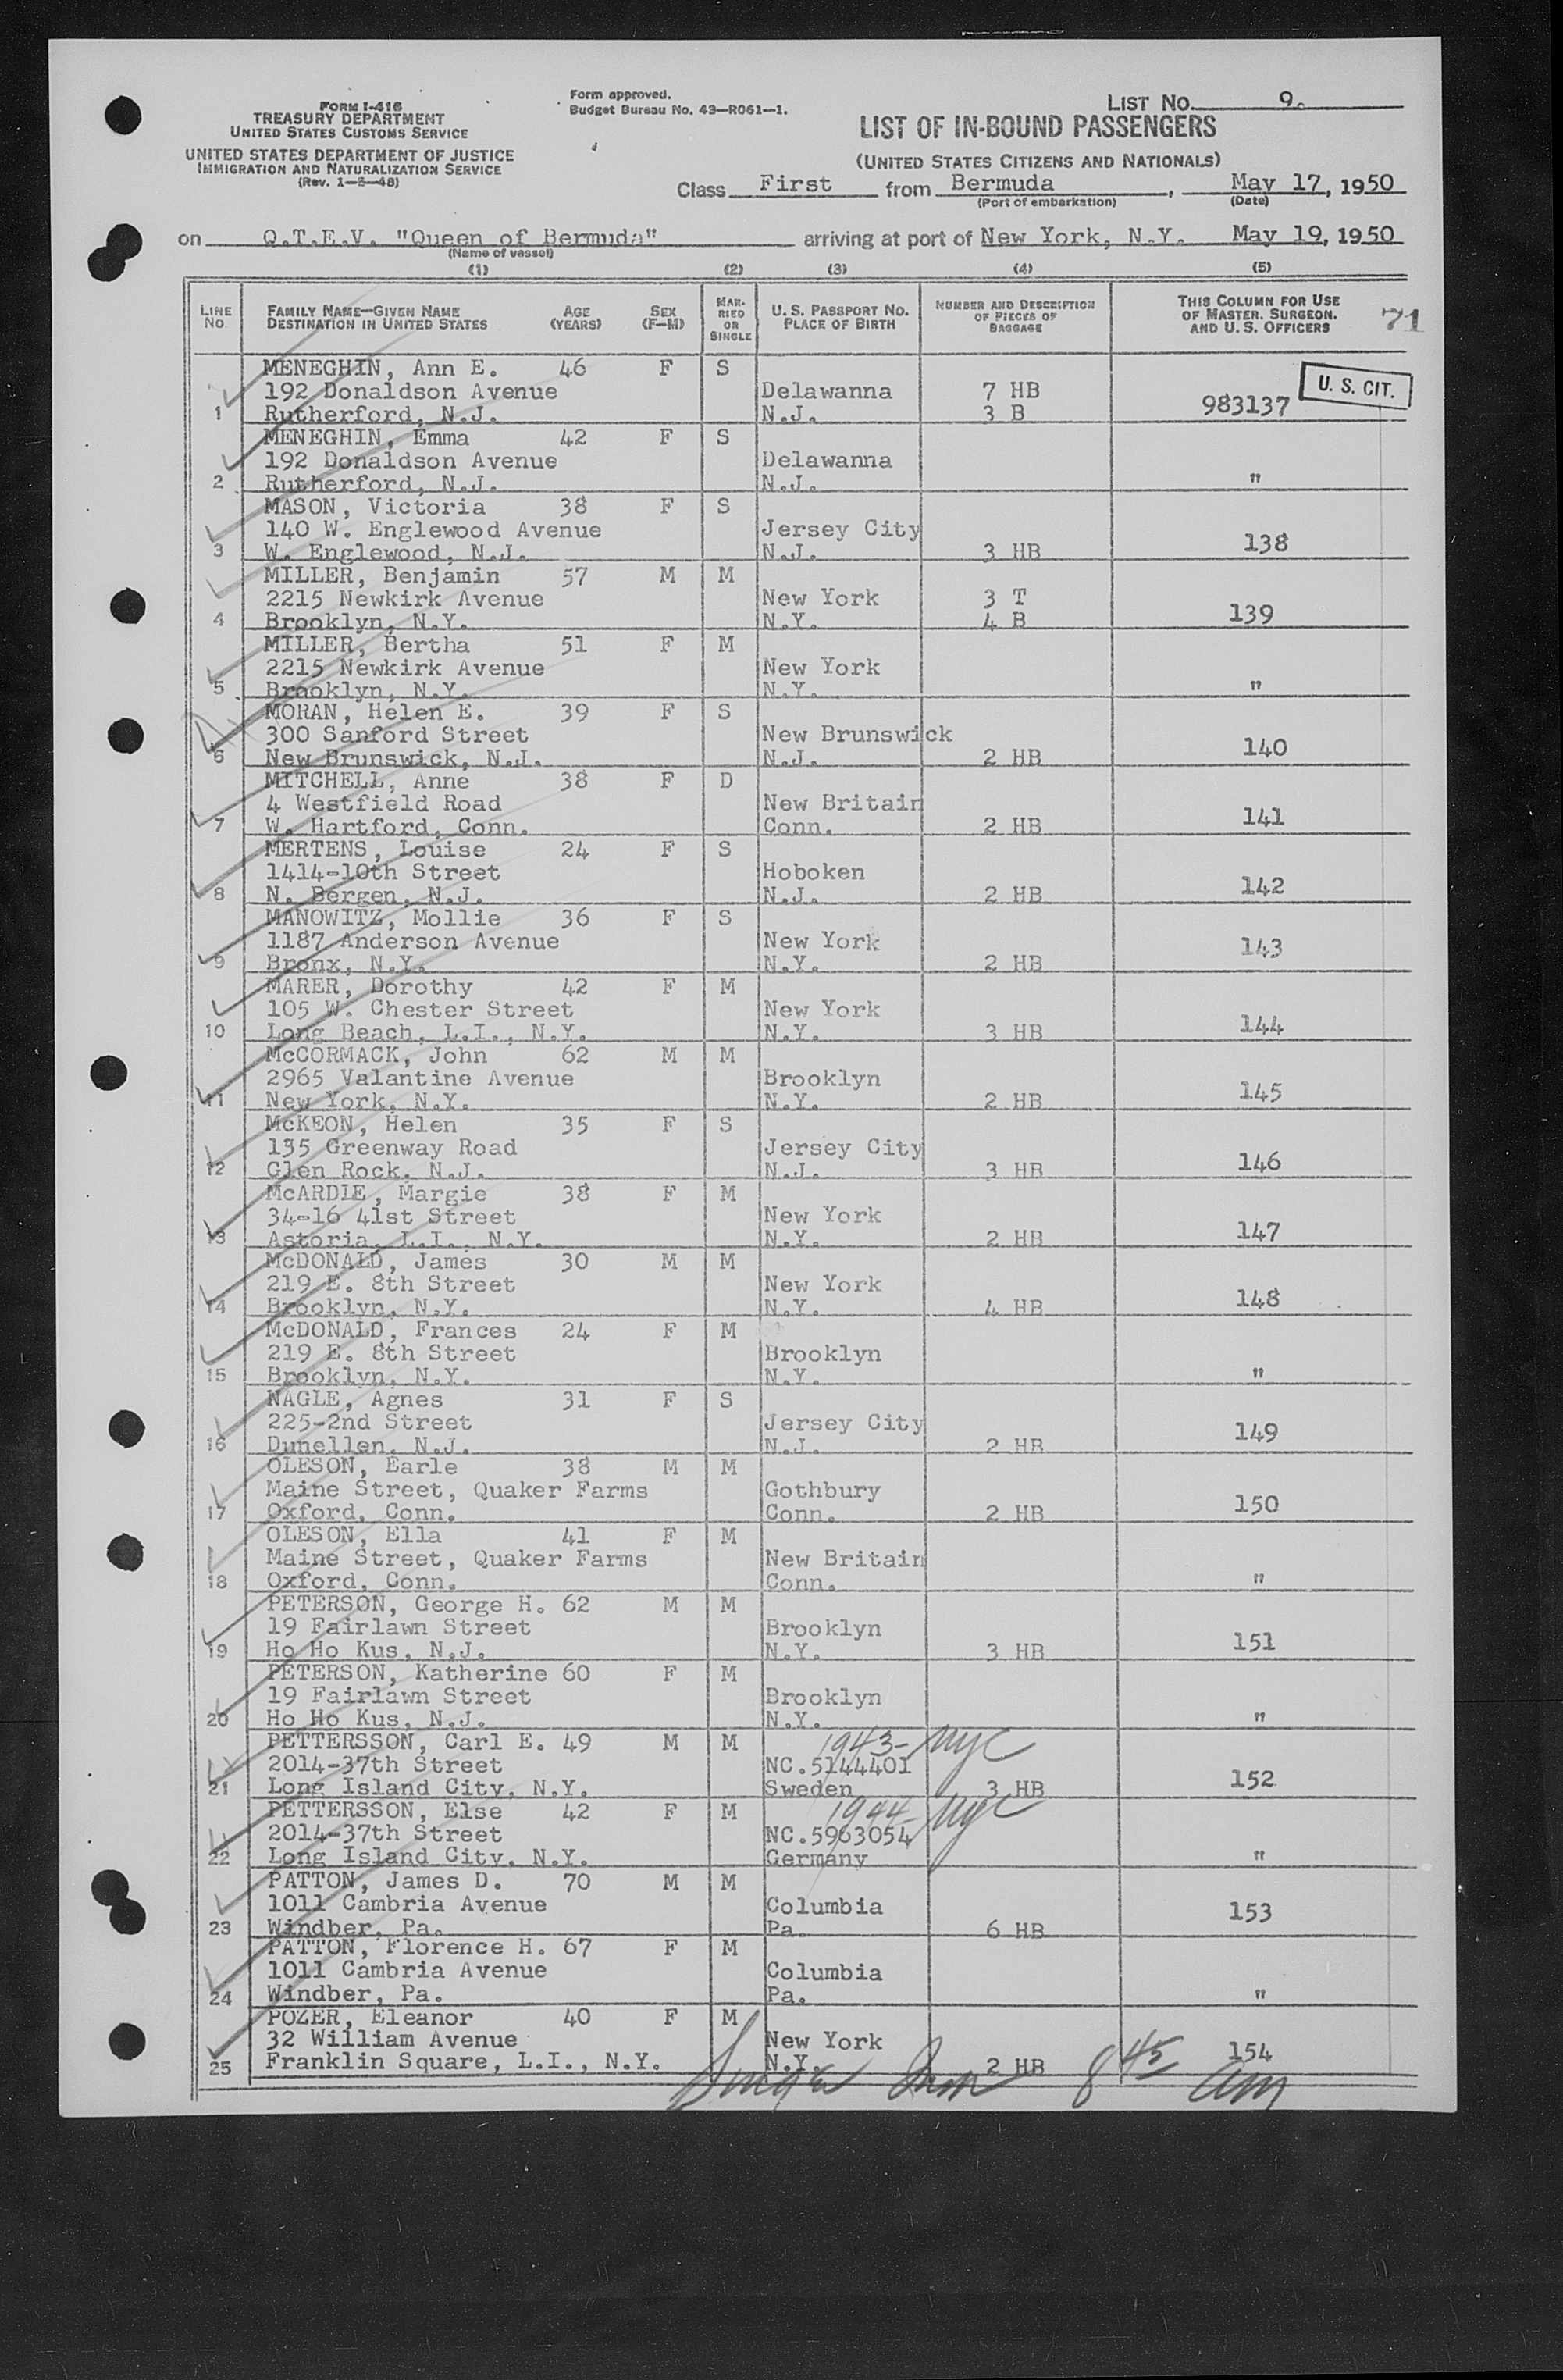 FORM I-416
TREASURY DEPARTMENT
UNITED STATES CUSTOMS SERVICE
UNITED STATES DEPARTMENT OF JUSTICE
IMMIGRATION AND NATURALIZATION SERVICE
(Rev. 1-5-48)
Form approved.
Budget Bureau No. 43-R061-1.
LIST NO. 9.
LIST OF IN-BOUND PASSENGERS
(UNITED STATES CITIZENS AND NATIONALS)
Class First from Bermuda, May 17, 1950
(Port of embarkation) (Date)
on Q.T.E.V. "Queen of Bermuda" arriving at port of New York, N.Y. May 19, 1950
(Name of vessel)
(1) (2) (3) (4) (5)
LINE NO. FAMILY NAME-GIVEN NAME DESTINATION IN UNITED STATES AGE (YEARS) SEX (F-M) MARRIED OR SINGLE U. S. PASSPORT NO. PLACE OF BIRTH NUMBER AND DESCRIPTION OF PIECES OF BAGGAGE THIS COLUMN FOR USE OF MASTER, SURGEON, AND U. S. OFFICERS 71
MENEGHIN, Ann E. 46 F S
192 Donaldson Avenue Delawanna 7 HB U. S. CIT.
1 Rutherford, N.J. N.J. 3 B 983137
MENEGHIN, Emma 42 F S
192 Donaldson Avenue Delawanna
2 Rutherford, N.J. N.J. "
MASON, Victoria 38 F S
140 W. Englewood Avenue Jersey City
3 W. Englewood, N.J. N.J. 3 HB 138
MILLER, Benjamin 57 M M
2215 Newkirk Avenue New York 3 T
4 Brooklyn, N.Y. N.Y. 4 B 139
MILLER, Bertha 51 F M
2215 Newkirk Avenue New York
5 Brooklyn, N.Y. N.Y. "
MORAN, Helen E. 39 F S
300 Sanford Street New Brunswick
6 New Brunswick, N.J. N.J. 2 HB 140
MITCHELL, Anne 38 F D
4 Westfield Road New Britain
7 W. Hartford, Conn. Conn. 2 HB 141
MERTENS, Louise 24 F S
1414-10th Street Hoboken
8 N. Bergen, N.J. N.J. 2 HB 142
MANOWITZ, Mollie 36 F S
1187 Anderson Avenue New York
9 Bronx, N.Y. N.Y. 2 HB 143
MARER, Dorothy 42 F M
105 W. Chester Street New York
10 Long Beach, L.I., N.Y. N.Y. 3 HB 144
McCORMACK, John 62 M M
2965 Valantine Avenue Brooklyn
11 New York, N.Y. N.Y. 2 HB 145
McKEON, Helen 35 F S
135 Greenway Road Jersey City
12 Glen Rock, N.J. N.J. 3 HB 146
McARDIE, Margie 38 F M
34-16 41st Street New York
13 Astoria, L.I., N.Y. N.Y. 2 HB 147
McDONALD, James 30 M M
219 E. 8th Street New York
14 Brooklyn, N.Y. N.Y. 4 HB 148
McDONALD, Frances 24 F M
219 E. 8th Street Brooklyn
15 Brooklyn, N.Y. N.Y. "
NAGLE, Agnes 31 F S
225-2nd Street Jersey City
16 Dunellen, N.J. N.J. 2 HB 149
OLESON, Earle 38 M M
Maine Street, Quaker Farms Gothbury
17 Oxford, Conn. Conn. 2 HB 150
OLESON, Ella 41 F M
Maine Street, Quaker Farms New Britain
18 Oxford, Conn. Conn. "
PETERSON, George H. 62 M M
19 Fairlawn Street Brooklyn
19 Ho Ho Kus, N.J. N.Y. 3 HB 151
PETERSON, Katherine 60 F M
19 Fairlawn Street Brooklyn
20 Ho Ho Kus, N.J. N.Y. "
PETTERSSON, Carl E. 49 M M 1943- NYC
2014-37th Street NC.5144401
21 Long Island City, N.Y. Sweden 3 HB 152
PETTERSSON, Else 42 F M 1944- NYC
2014-37th Street NC.5963054
22 Long Island City, N.Y. Germany "
PATTON, James D. 70 M M
1011 Cambria Avenue Columbia
23 Windber, Pa. Pa. 6 HB 153
PATTON, Florence H. 67 F M
1011 Cambria Avenue Columbia
24 Windber, Pa. Pa. "
POZER, Eleanor 40 F M
32 William Avenue New York
25 Franklin Square, L.I., N.Y. N.Y. 2 HB 154
8 45 am